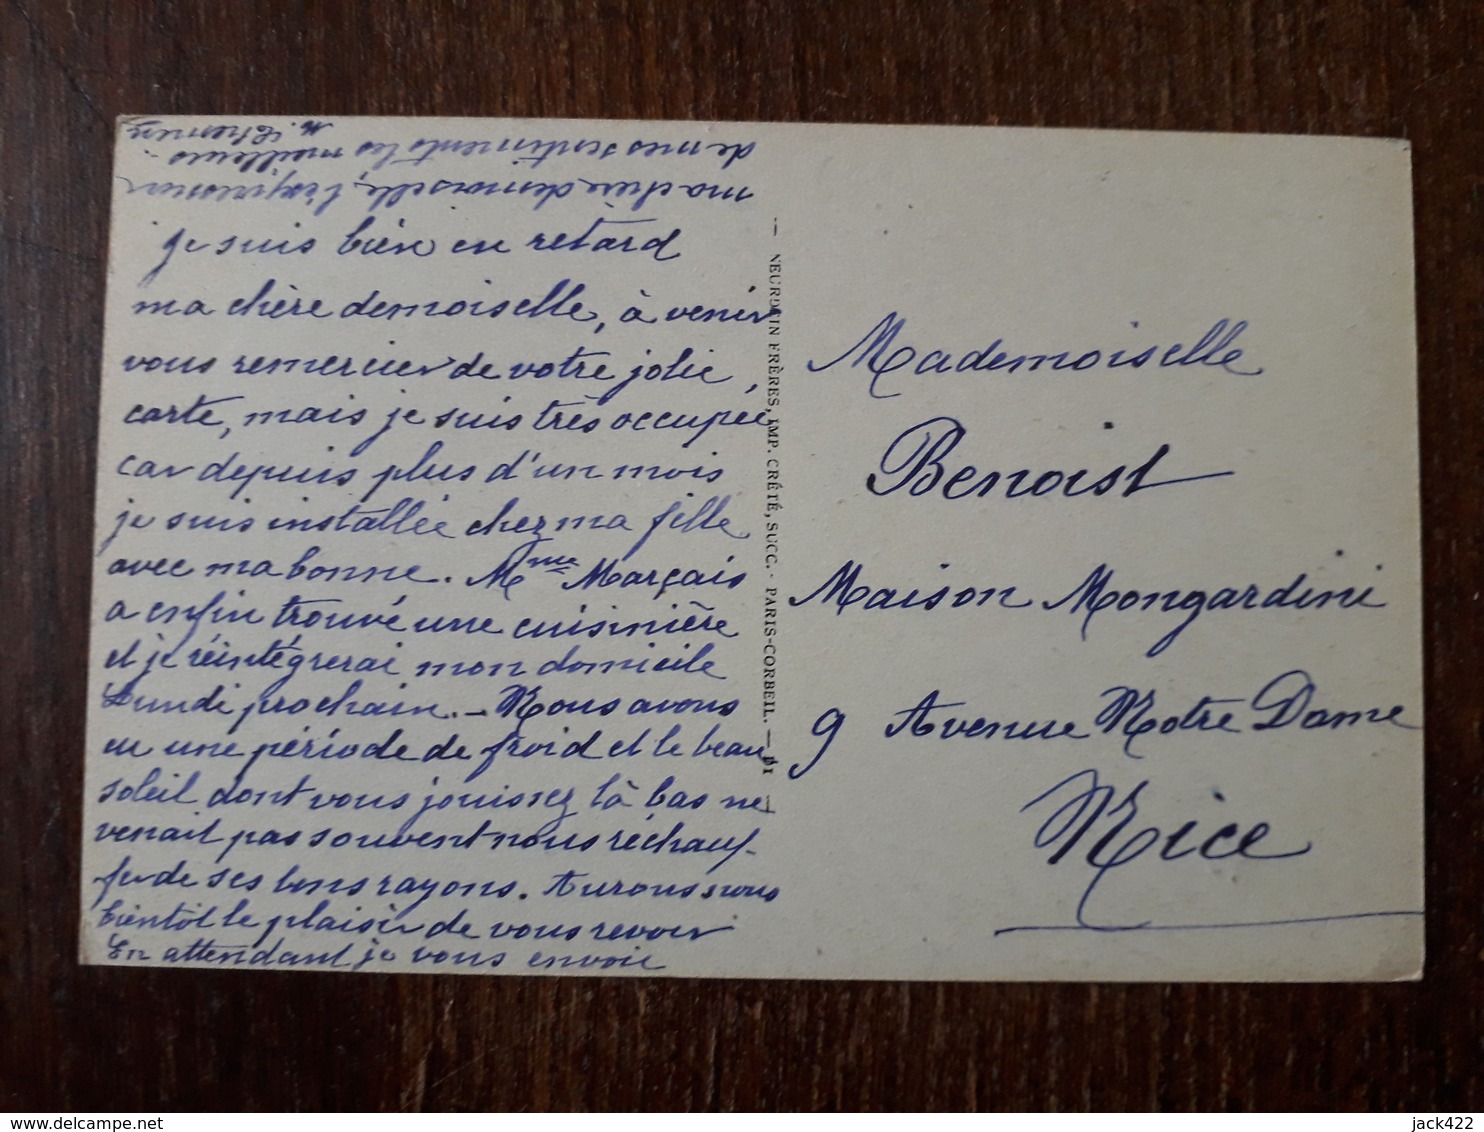 Je suis bien en retard
ma chère demoiselle, à venir
vous remercier de votre jolie
carte, mais je suis très occupée
car depuis plus d'un mois
je suis installée chez ma fille
avec ma bonne. Mme Marçais
a enfin trouvé une cuisinière
et je réintégrerai mon domicile
Lundi prochain. - Nous avons
eu une période de froid et le beau
soleil dont vous jouissez là bas ne
venait pas souvent nous réchauf-
fer de ses bons rayons. Aurons nous
bientôt le plaisir de vous revoir
En attendant je vous envoie
ma chère demoiselle, l'expression
de mes sentiments les meilleurs.
— NEURDEIN FRÈRES, IMP. CRÉTÉ, SUCC. · PARIS-CORBEIL. —
Mademoiselle
Benoist
Maison Mongardini
9 Avenue Notre Dame
Nice
jack422